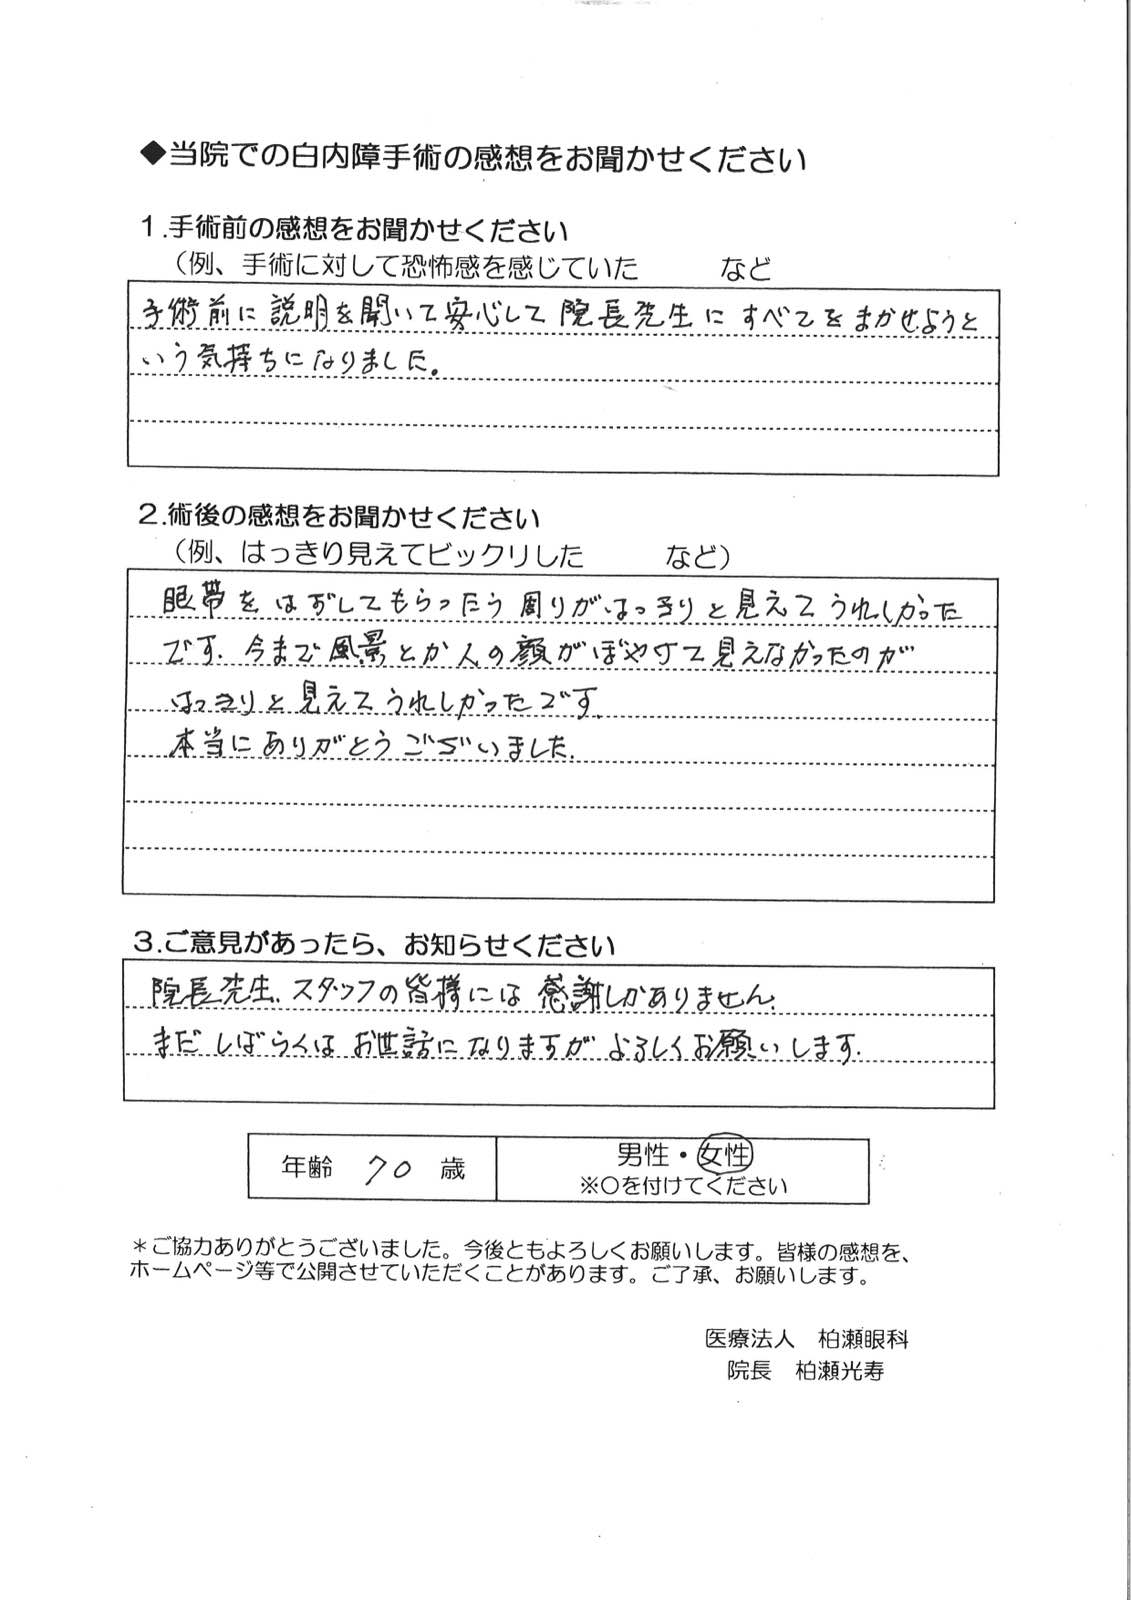 ◆当院での白内障手術の感想をお聞かせください
１.手術前の感想をお聞かせください
（例、手術に対して恐怖感を感じていた　　　など
手術前に説明を聞いて安心して院長先生にすべてをまかせようと
いう気持ちになりました。
２.術後の感想をお聞かせください
（例、はっきり見えてビックリした　　　など）
眼帯をはずしてもらったら周りがはっきりと見えてうれしかった
です. 今まで風景とか人の顔がぼやけて見えなかったのが
はっきりと見えてうれしかったです.
本当にありがとうございました.
３.ご意見があったら、お知らせください
院長先生. スタッフの皆様には感謝しかありません.
まだしばらくはお世話になりますがよろしくお願いします.
年齢　70　歳
男性・女性
※〇を付けてください
＊ご協力ありがとうございました。今後ともよろしくお願いします。皆様の感想を、
ホームページ等で公開させていただくことがあります。ご了承、お願いします。
医療法人　柏瀬眼科
院長　柏瀬光寿